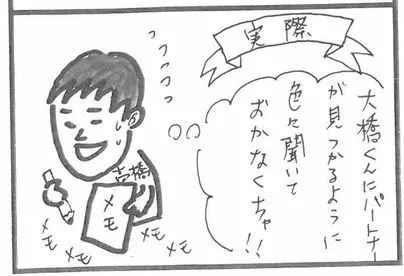 実際
大橋くんにパートナー
が見つかるように
色々聞いて
おかなくちゃ!!
フフフフッ
吉橋
メモ
メモ
メモ
メモ
メモ